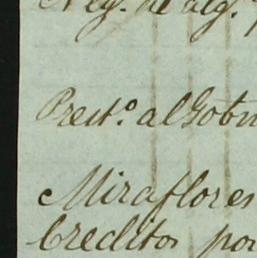 Neg. de alg.
Prest.º al Gobn
Miraflores
Creditos por